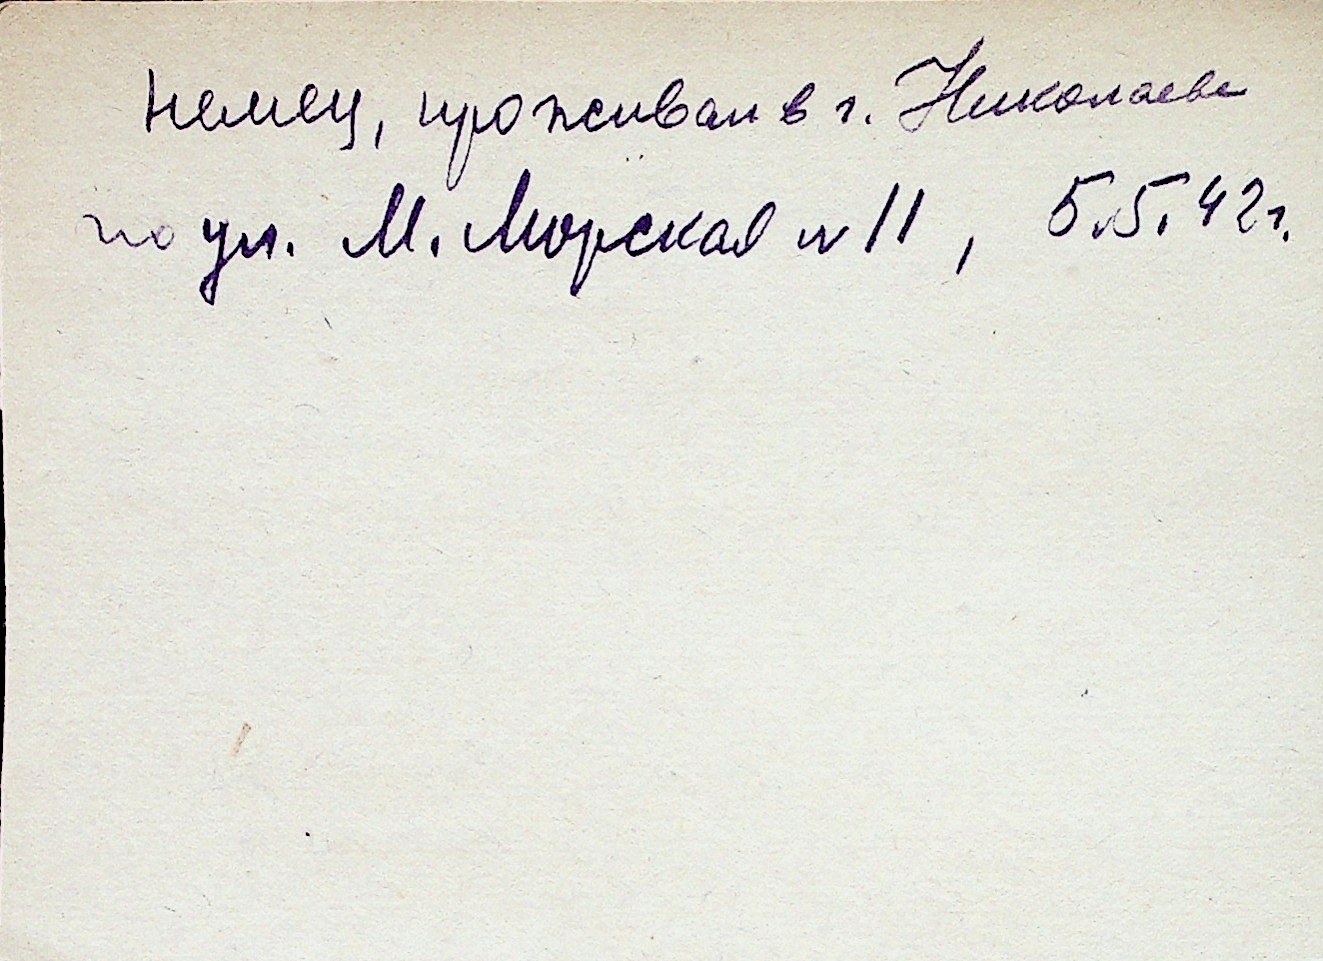 немец, проживал в г. Николаеве
по ул. М. Морская № 11, 5.5.42г.